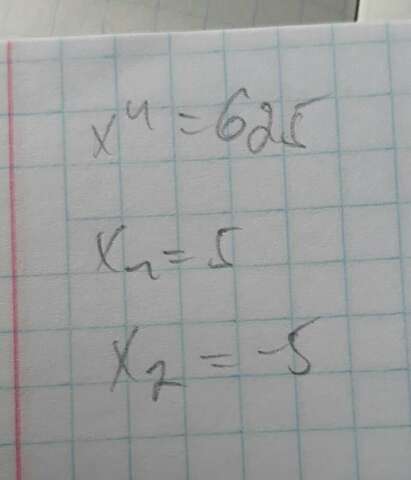 x⁴ = 625
x₁ = 5
x₂ = -5